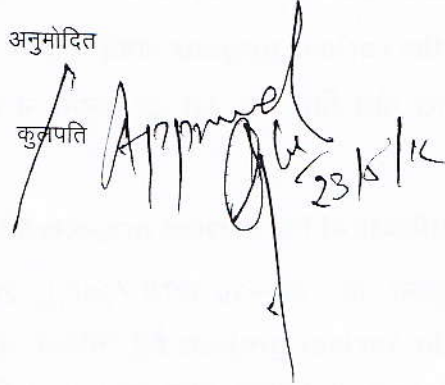 अनुमोदित
कुलपति
Approved
23/5/12